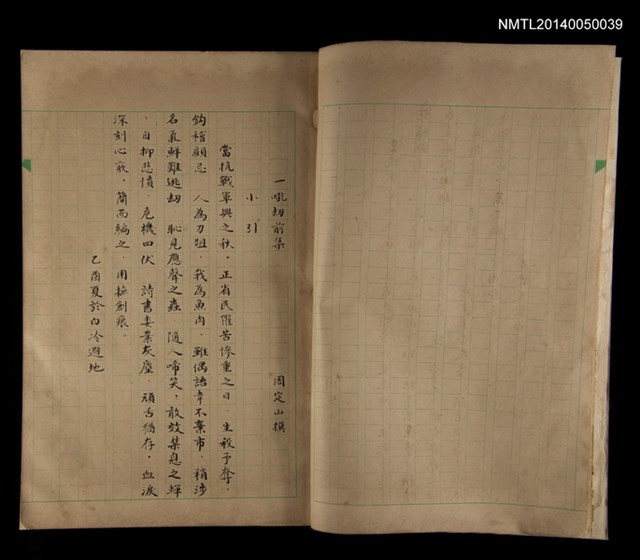 NMTL20140050039
一吼劫前集　周定山撰
小引
當抗戰軍興之秋．正省民罹苦慘重之日．生殺予奪．
鈎稽顧忌　人為刀俎．我為魚肉．雖偶語幸不棄市．稍涉
名氣鮮難逃劫　恥見應聲之蟲　隨人啼笑，敢效禁息之蟬
．自抑悲憤　危機四伏　詩書委棄灰塵．頑舌猶存．血淚
深刻心臟．簡而編之　用撫創痕．
乙酉夏於白冷避地